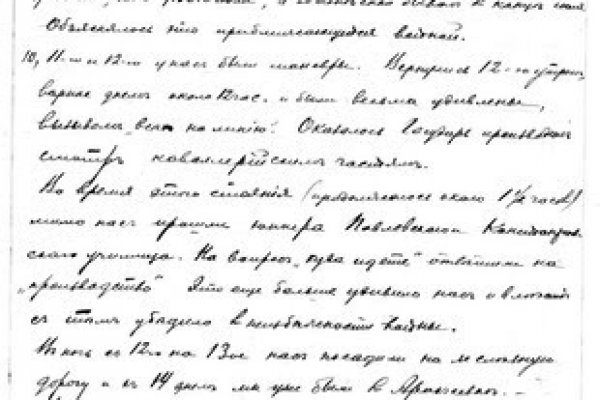 Объяснялось это приближающейся войной.
10, 11-го и 12-го у нас были маневры. Вернулись 12-го утром,
вернее днем около 12 час. и были весьма удивлены,
вызовом „всех на линию“. Оказалось Государь производил
смотр кавалерийским частям.
Во время этого стояния (продолжалось около 1½ часов)
мимо нас прошли юнкера Павловского
ского училища. На вопрос „куда идете“ ответили на
„производство“ Это еще больше удивило нас и вместе
с тем убедило в неизбежности войны.
В ночь с 12го на 13ое нас посадили на железную
дорогу и в 14 днем мы уже были в